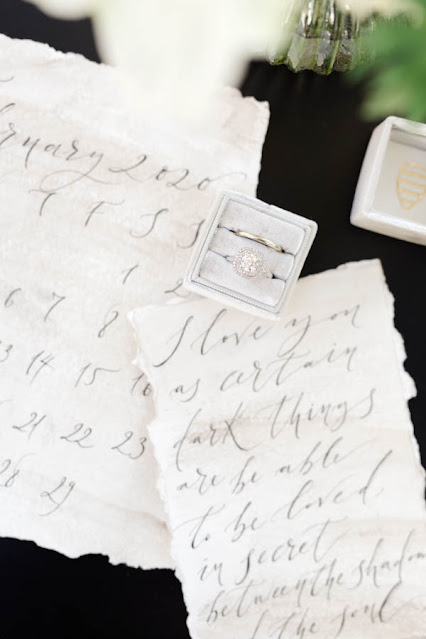 bruary 2020
T F S S
1 2
6 7 8
13 14 15 16
21 22 23
28 29
I love you
as certain
dark things
are be able
to be loved
in secret
between the shadow
the soul